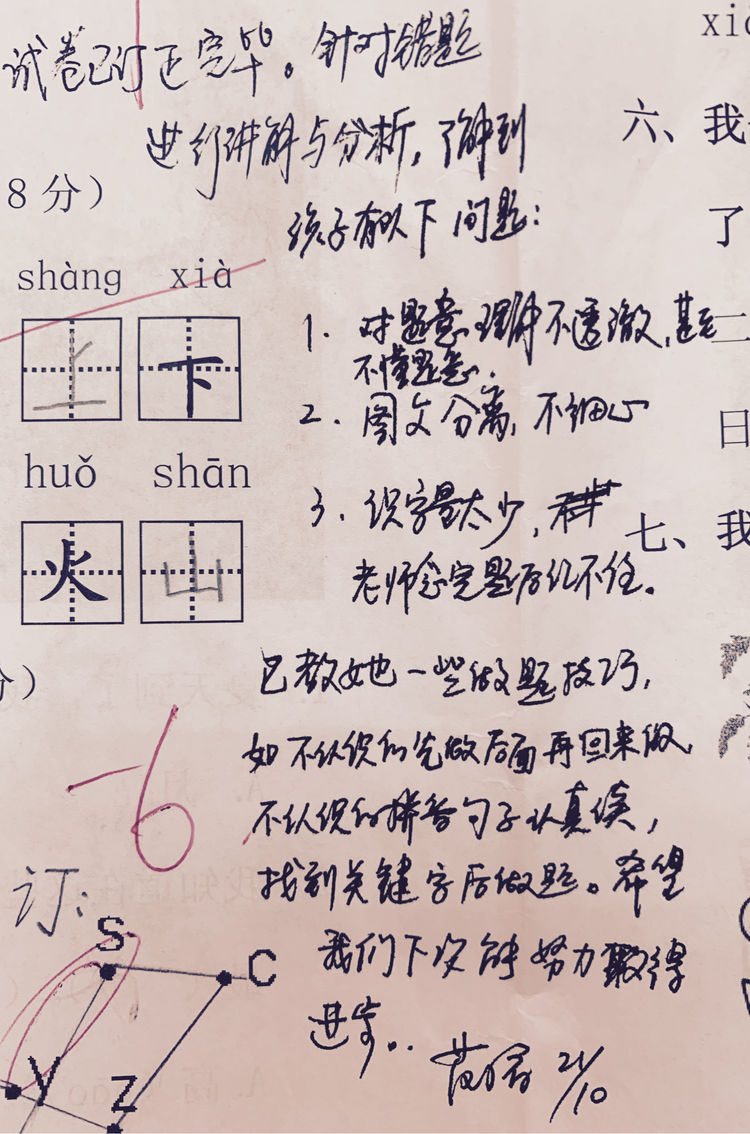 试卷已订正完毕。针对错题
进行讲解与分析，了解到
孩子有以下问题：
1. 对题意理解不透澈，甚至
不懂题意.
2. 图文分离，不细心
3. 识字量太少，
老师念完题后记不住。
已教她一些做题技巧，
如不认识的先做后面再回来做，
不认识的拼音句子认真读，
找到关键字后做题。希望
我们下次能努力取得
进步。
21/10
8分）
shàng xià
上 下
huǒ shān
火 山
分）
-6
订：
S
C
Y
Z
xià
六、我
了
二
日
七、我